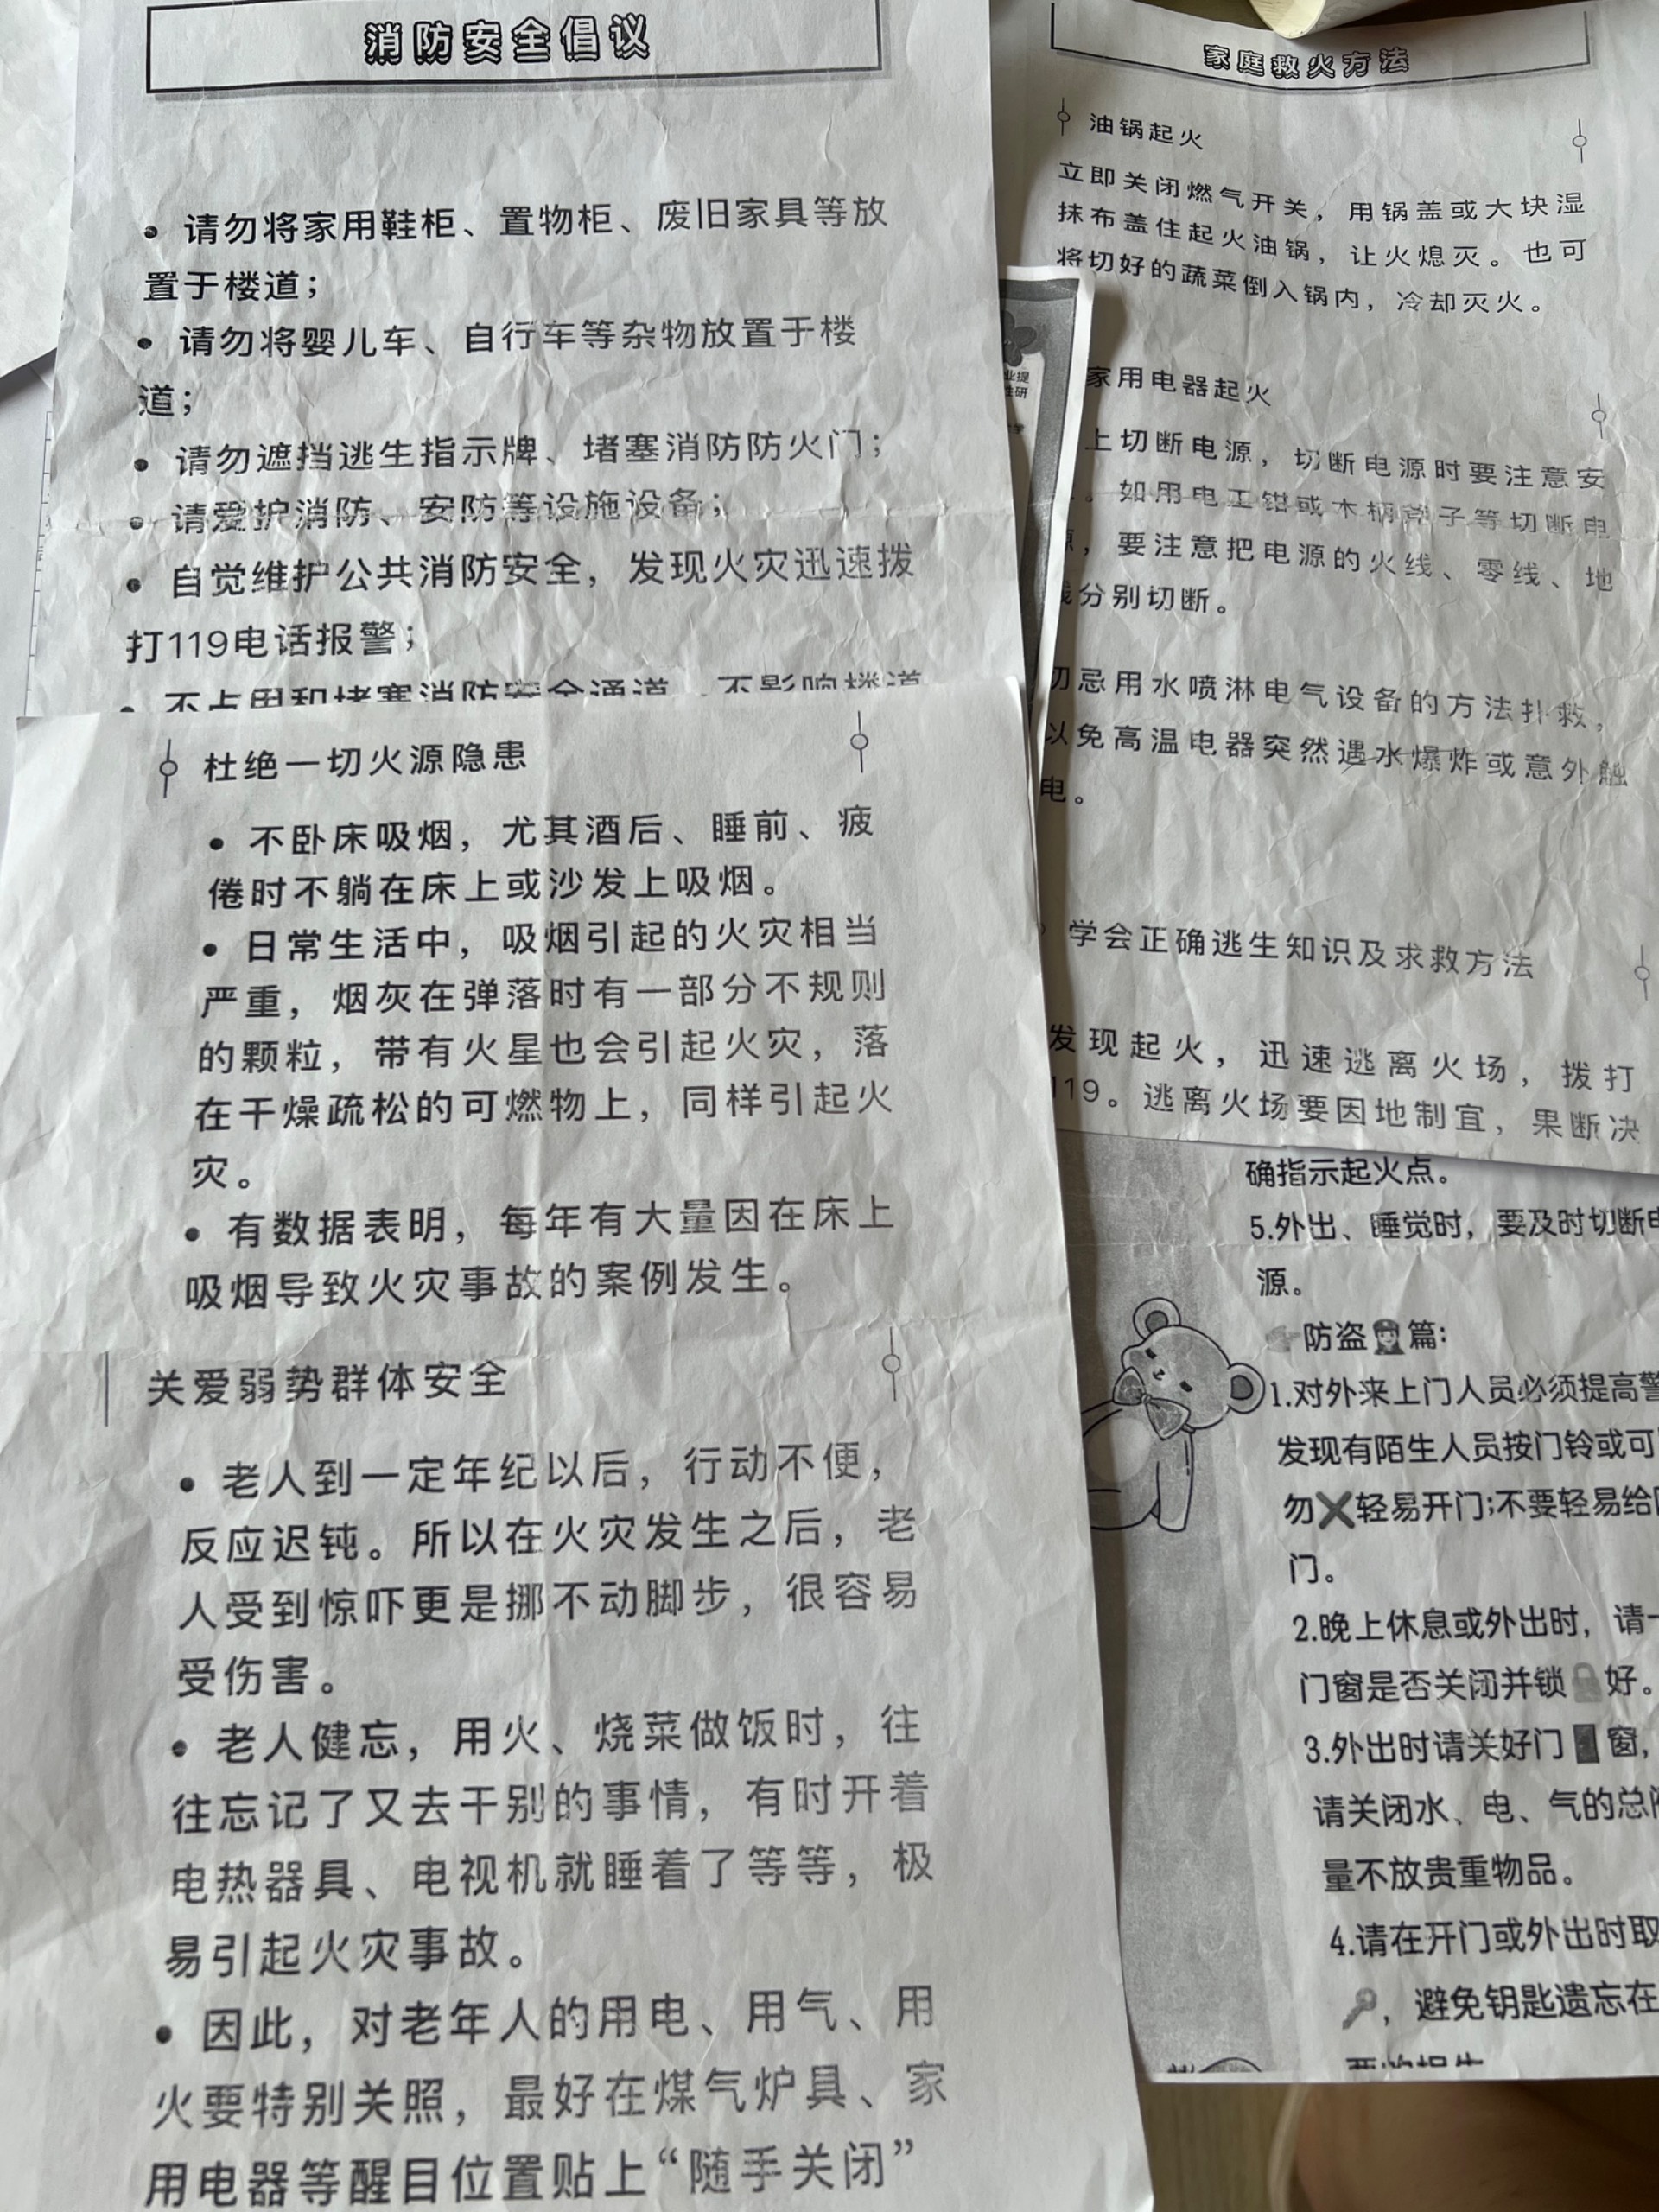 消防安全倡议
• 请勿将家用鞋柜、置物柜、废旧家具等放
置于楼道；
• 请勿将婴儿车、自行车等杂物放置于楼
道；
• 请勿遮挡逃生指示牌、堵塞消防防火门；
• 请爱护消防、安防等设施设备；
• 自觉维护公共消防安全，发现火灾迅速拨
打119电话报警；
• 不占用和堵塞消防安全通道、不影响楼道
杜绝一切火源隐患
• 不卧床吸烟，尤其酒后、睡前、疲
倦时不躺在床上或沙发上吸烟。
• 日常生活中，吸烟引起的火灾相当
严重，烟灰在弹落时有一部分不规则
的颗粒，带有火星也会引起火灾，落
在干燥疏松的可燃物上，同样引起火
灾。
• 有数据表明，每年有大量因在床上
吸烟导致火灾事故的案例发生。
关爱弱势群体安全
• 老人到一定年纪以后，行动不便，
反应迟钝。所以在火灾发生之后，老
人受到惊吓更是挪不动脚步，很容易
受伤害。
• 老人健忘，用火、烧菜做饭时，往
往忘记了又去干别的事情，有时开着
电热器具、电视机就睡着了等等，极
易引起火灾事故。
• 因此，对老年人的用电、用气、用
火要特别关照，最好在煤气炉具、家
用电器等醒目位置贴上“随手关闭”
家庭救火方法
油锅起火
立即关闭燃气开关，用锅盖或大块湿
抹布盖住起火油锅，让火熄灭。也可
将切好的蔬菜倒入锅内，冷却灭火。
业提
性研
学
家用电器起火
上切断电源，切断电源时要注意安
。如用电工钳或木柄凿子等切断电
源，要注意把电源的火线、零线、地
线分别切断。
切忌用水喷淋电气设备的方法扑救，
以免高温电器突然遇水爆炸或意外触
电。
学会正确逃生知识及求救方法
发现起火，迅速逃离火场，拨打
119。逃离火场要因地制宜，果断决
确指示起火点。
5.外出、睡觉时，要及时切断电
源。
防盗篇：
1.对外来上门人员必须提高警
发现有陌生人员按门铃或可
勿❌轻易开门;不要轻易给
门。
2.晚上休息或外出时，请一
门窗是否关闭并锁🔒好。
3.外出时请关好门🚪窗，
请关闭水、电、气的总
量不放贵重物品。
4.请在开门或外出时取
🔑，避免钥匙遗忘在